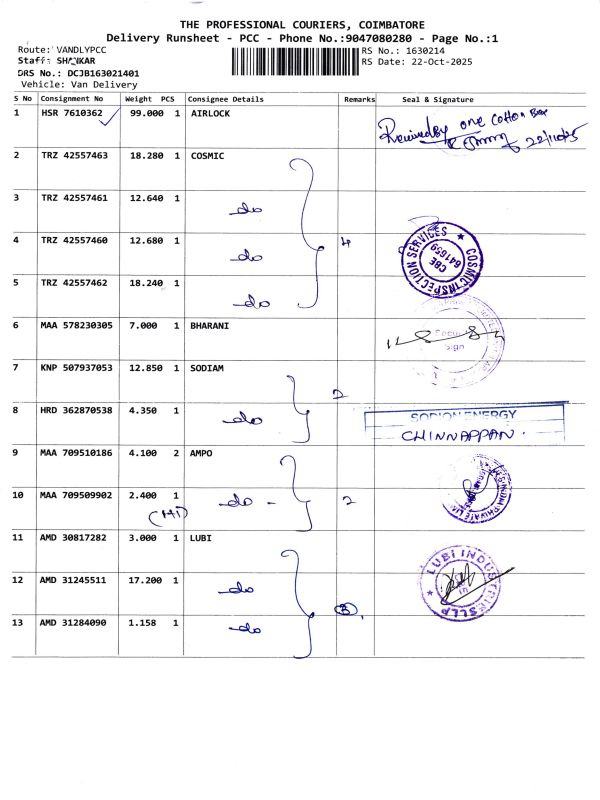 THE PROFESSIONAL COURIERS, COIMBATORE
Delivery Runsheet - PCC - Phone No.:9047080280 - Page No.:1
Route: VANDLYPCC RS No.: 1630214
Staff: SHANKAR RS Date: 22-Oct-2025
DRS No.: DCJB163021401
Vehicle: Van Delivery
S No Consignment No Weight PCS Consignee Details Remarks Seal & Signature
1 HSR 7610362 99.000 1 AIRLOCK
Received by one Cotton Box
22/10/25
2 TRZ 42557463 18.280 1 COSMIC
3 TRZ 42557461 12.640 1 do
4 TRZ 42557460 12.680 1 do 4
COSMIC INSPECTION SERVICES ★
CBE
641659
5 TRZ 42557462 18.240 1 do
6 MAA 578230305 7.000 1 BHARANI
7 KNP 507937053 12.850 1 SODIAM 2
8 HRD 362870538 4.350 1 do
SODION ENERGY
CHINNAPPAN.
9 MAA 709510186 4.100 2 AMPO
10 MAA 709509902 2.400 1 do - 2
PRIVATE
11 AMD 30817282 3.000 1 LUBI
12 AMD 31245511 17.200 1 do 3
★ LUBI INDUSTRIES LLP
13 AMD 31284090 1.158 1 do